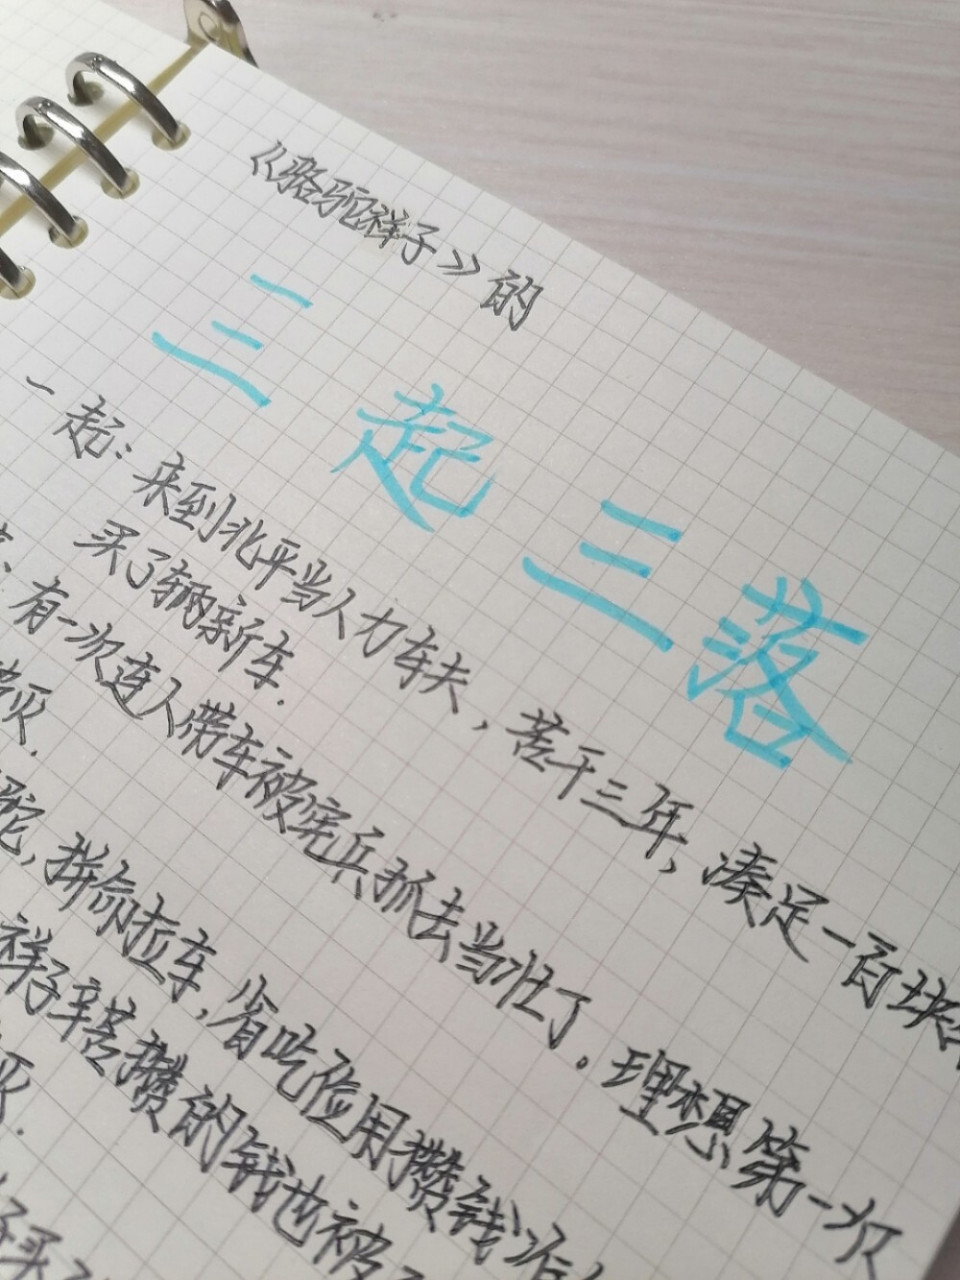 《骆驼祥子》的
三起三落
一起：来到北平当人力车夫，苦干三年，凑足一百块
买了辆新车.
有一次连人带车被宪兵抓去当壮丁.理想第一次
灭.
驼,拼命拉车,省吃俭用攒钱
祥子辛苦攒的钱也被
灭.
买